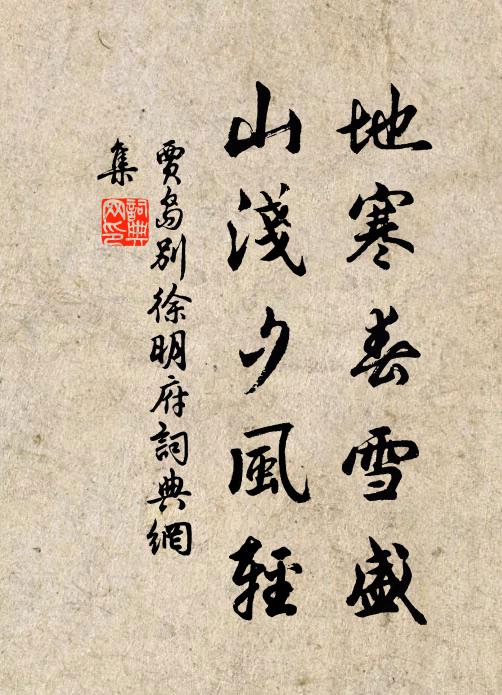 地寒春雪盛
山淺夕風輕
賈島別徐明府詞典網
集
詞典
网印